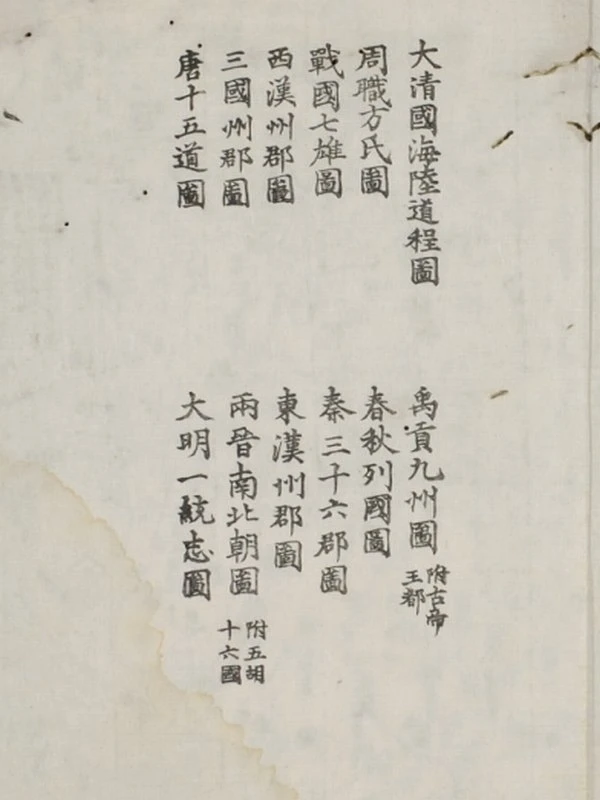 大清國海陸道程圖
禹貢九州圖
附古帝
王都
周職方氏圖
春秋列國圖
戰國七雄圖
秦三十六郡圖
西漢州郡圖
東漢州郡圖
三國州郡圖
兩晉南北朝圖
附五胡
十六國
唐十五道圖
大明一統志圖